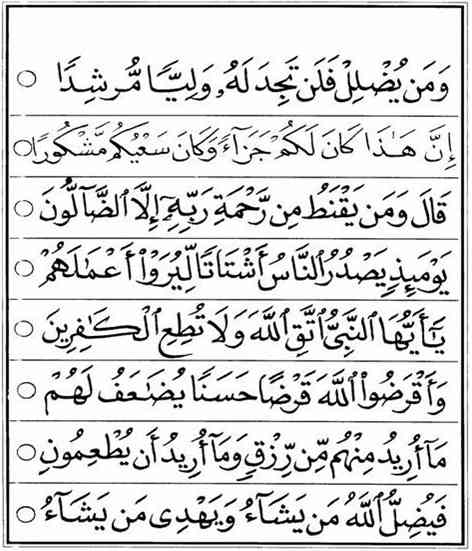 وَمَن يُضْلِلْ فَلَن تَجِدَ لَهُۥ وَلِيًّا مُّرْشِدًا
إِنَّ هَٰذَا كَانَ لَكُمْ جَزَآءً وَكَانَ سَعْيُكُم مَّشْكُورًا
قَالَ وَمَن يَقْنَطُ مِن رَّحْمَةِ رَبِّهِۦٓ إِلَّا ٱلضَّآلُّونَ
يَوْمَئِذٍ يَصْدُرُ ٱلنَّاسُ أَشْتَاتًا لِّيُرَوْا۟ أَعْمَٰلَهُمْ
يَٰٓأَيُّهَا ٱلنَّبِىُّ ٱتَّقِ ٱللَّهَ وَلَا تُطِعِ ٱلْكَٰفِرِينَ
وَأَقْرَضُوا۟ ٱللَّهَ قَرْضًا حَسَنًا يُضَٰعَفُ لَهُمْ
مَآ أُرِيدُ مِنْهُم مِّن رِّزْقٍ وَمَآ أُرِيدُ أَن يُطْعِمُونِ
فَيُضِلُّ ٱللَّهُ مَن يَشَآءُ وَيَهْدِى مَن يَشَآءُ